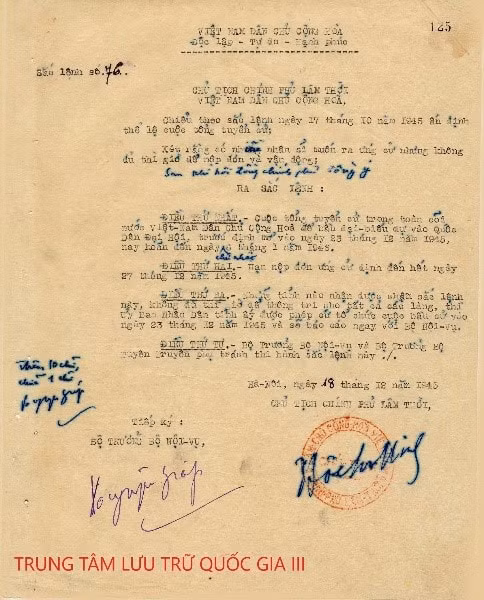 125
VIỆT NAM DÂN CHỦ CỘNG HÒA
Độc lập - Tự do - Hạnh phúc
Sắc lệnh số 76.
CHỦ TỊCH CHÍNH PHỦ LÂM THỜI
VIỆT NAM DÂN CHỦ CỘNG HÒA,
Chiếu theo sắc lệnh ngày 17 tháng 10 năm 1945 ấn định
thể lệ cuộc tổng tuyển cử;
Xét rằng có nhiều nhân sĩ muốn ra ứng cử nhưng không
đủ thì giờ để nộp đơn và vận động;
Sau khi hội đồng chính phủ đồng ý
RA SẮC LỆNH :
ĐIỀU THỨ NHẤT.- Cuộc tổng tuyển cử trong toàn cõi
nước Việt-Nam Dân Chủ Cộng Hoà để bầu đại-biểu dự vào Quốc
Dân Đại Hội, trước định mở vào ngày 23 tháng 12 năm 1945,
nay hoãn đến ngày 6 tháng 1 năm 1946.
ĐIỀU THỨ HAI.- Hạn nộp đơn ứng cử định đến hết ngày
27 tháng 12 năm 1945.
ĐIỀU THỨ BA.- Những tỉnh nào nhận được chậm sắc lệnh
này, không đủ thì giờ để thông tri cho tất cả các làng, thì
Uỷ Ban Nhân Dân tỉnh ấy được phép cứ tổ chức cuộc bầu cử vào
ngày 23 tháng 12 năm 1945 và sẽ báo cáo ngay với Bộ Nội-Vụ.
ĐIỀU THỨ TƯ.- Bộ Trưởng Bộ Nội-Vụ và Bộ Trưởng Bộ
Tuyên Truyền phụ trách thi hành sắc lệnh này ./.
Thêm 10 chữ,
chữa 1 chữ
Võ Nguyên Giáp
Hà-Nội, ngày 18 tháng 12 năm 1945
CHỦ TỊCH CHÍNH PHỦ LÂM THỜI,
Tiếp ký :
BỘ TRƯỞNG BỘ NỘI-VỤ,
Hồ Chí Minh
Võ Nguyên Giáp
TRUNG TÂM LƯU TRỮ QUỐC GIA III